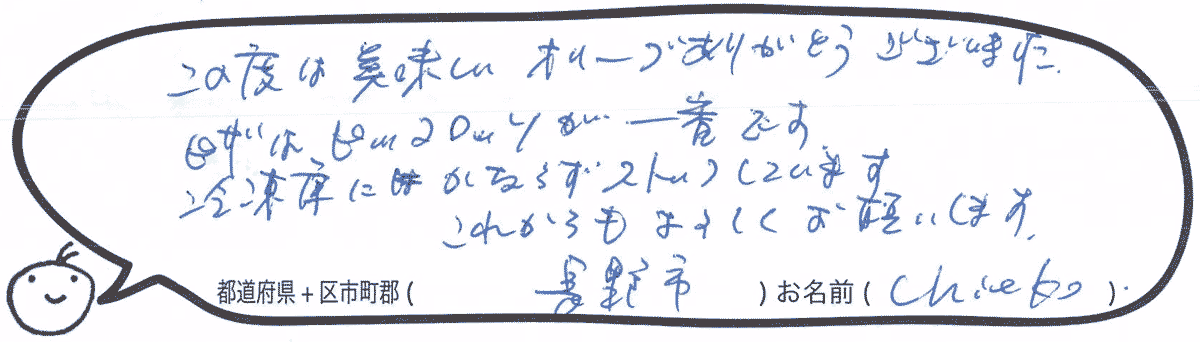 この度は美味しいオリーブありがとうございました.
はが一番です.
冷凍庫にはかならずストックしています
これからもよろしくお願いします.
都道府県+区市町郡( 長野市 )お名前( )